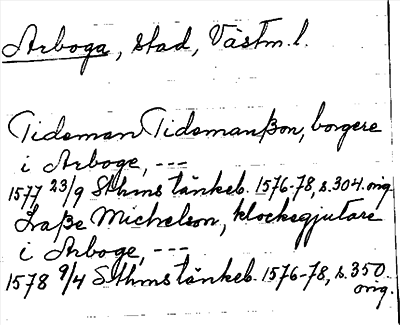 Arboga, stad, Västm.l.
Tidsman Tidsmanßon, borgere
i Arboge, ---
1577 23/9 Sthms tänkeb. 1576-78, s. 304. orig.
Laße Michelson, klockegjutare
i Arboge, ---
1578 9/4 Sthms tänkeb. 1576-78, s. 350.
orig.